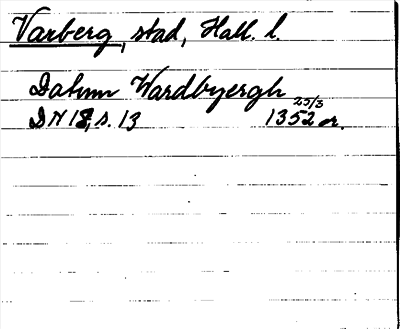 Varberg, stad, Hall. l.
Datum Wardbyergh
DN 18, s. 13 1352 25/3 or.